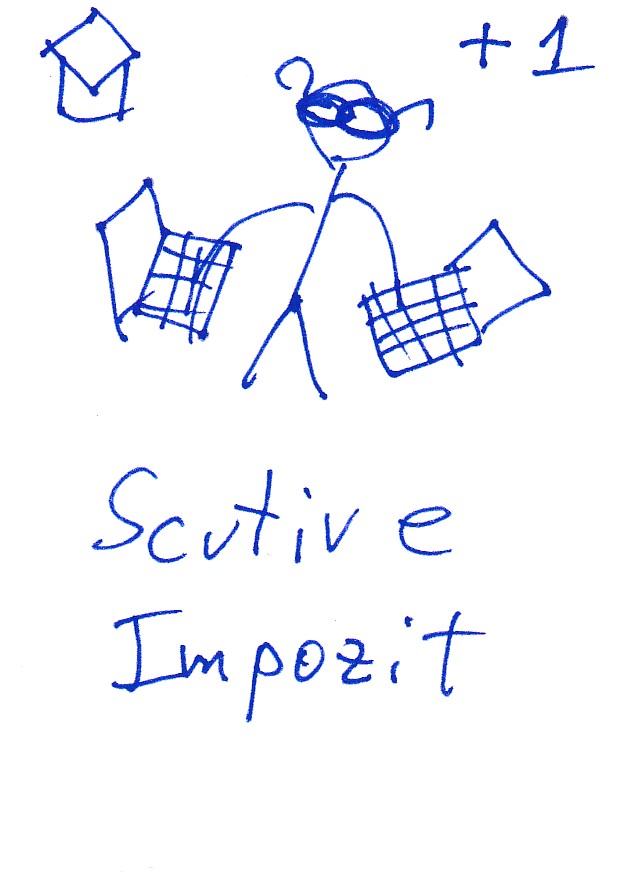 +1
Scutire
Impozit